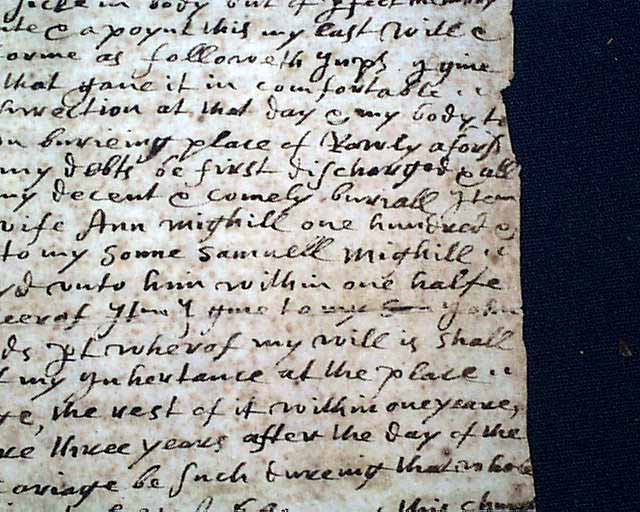 in body but of pfect memory
& apoynt this my last will &
forme as followeth Ymps y give
that gave it in comfortable
surrection at that day & my body to
burieing place of Rowly aforsd
my debts be first discharged & all
my decent & comely buriall Ytem
wife Ann mighill one hundred &
to my Sonne Samuell Mighill
yd unto him within one halfe
Ytm y give to my
pt wherof my will is shall
my ynheritance at the place
the rest of it within one yeare,
three years after the day of the
ariage be such dureing that whole
this